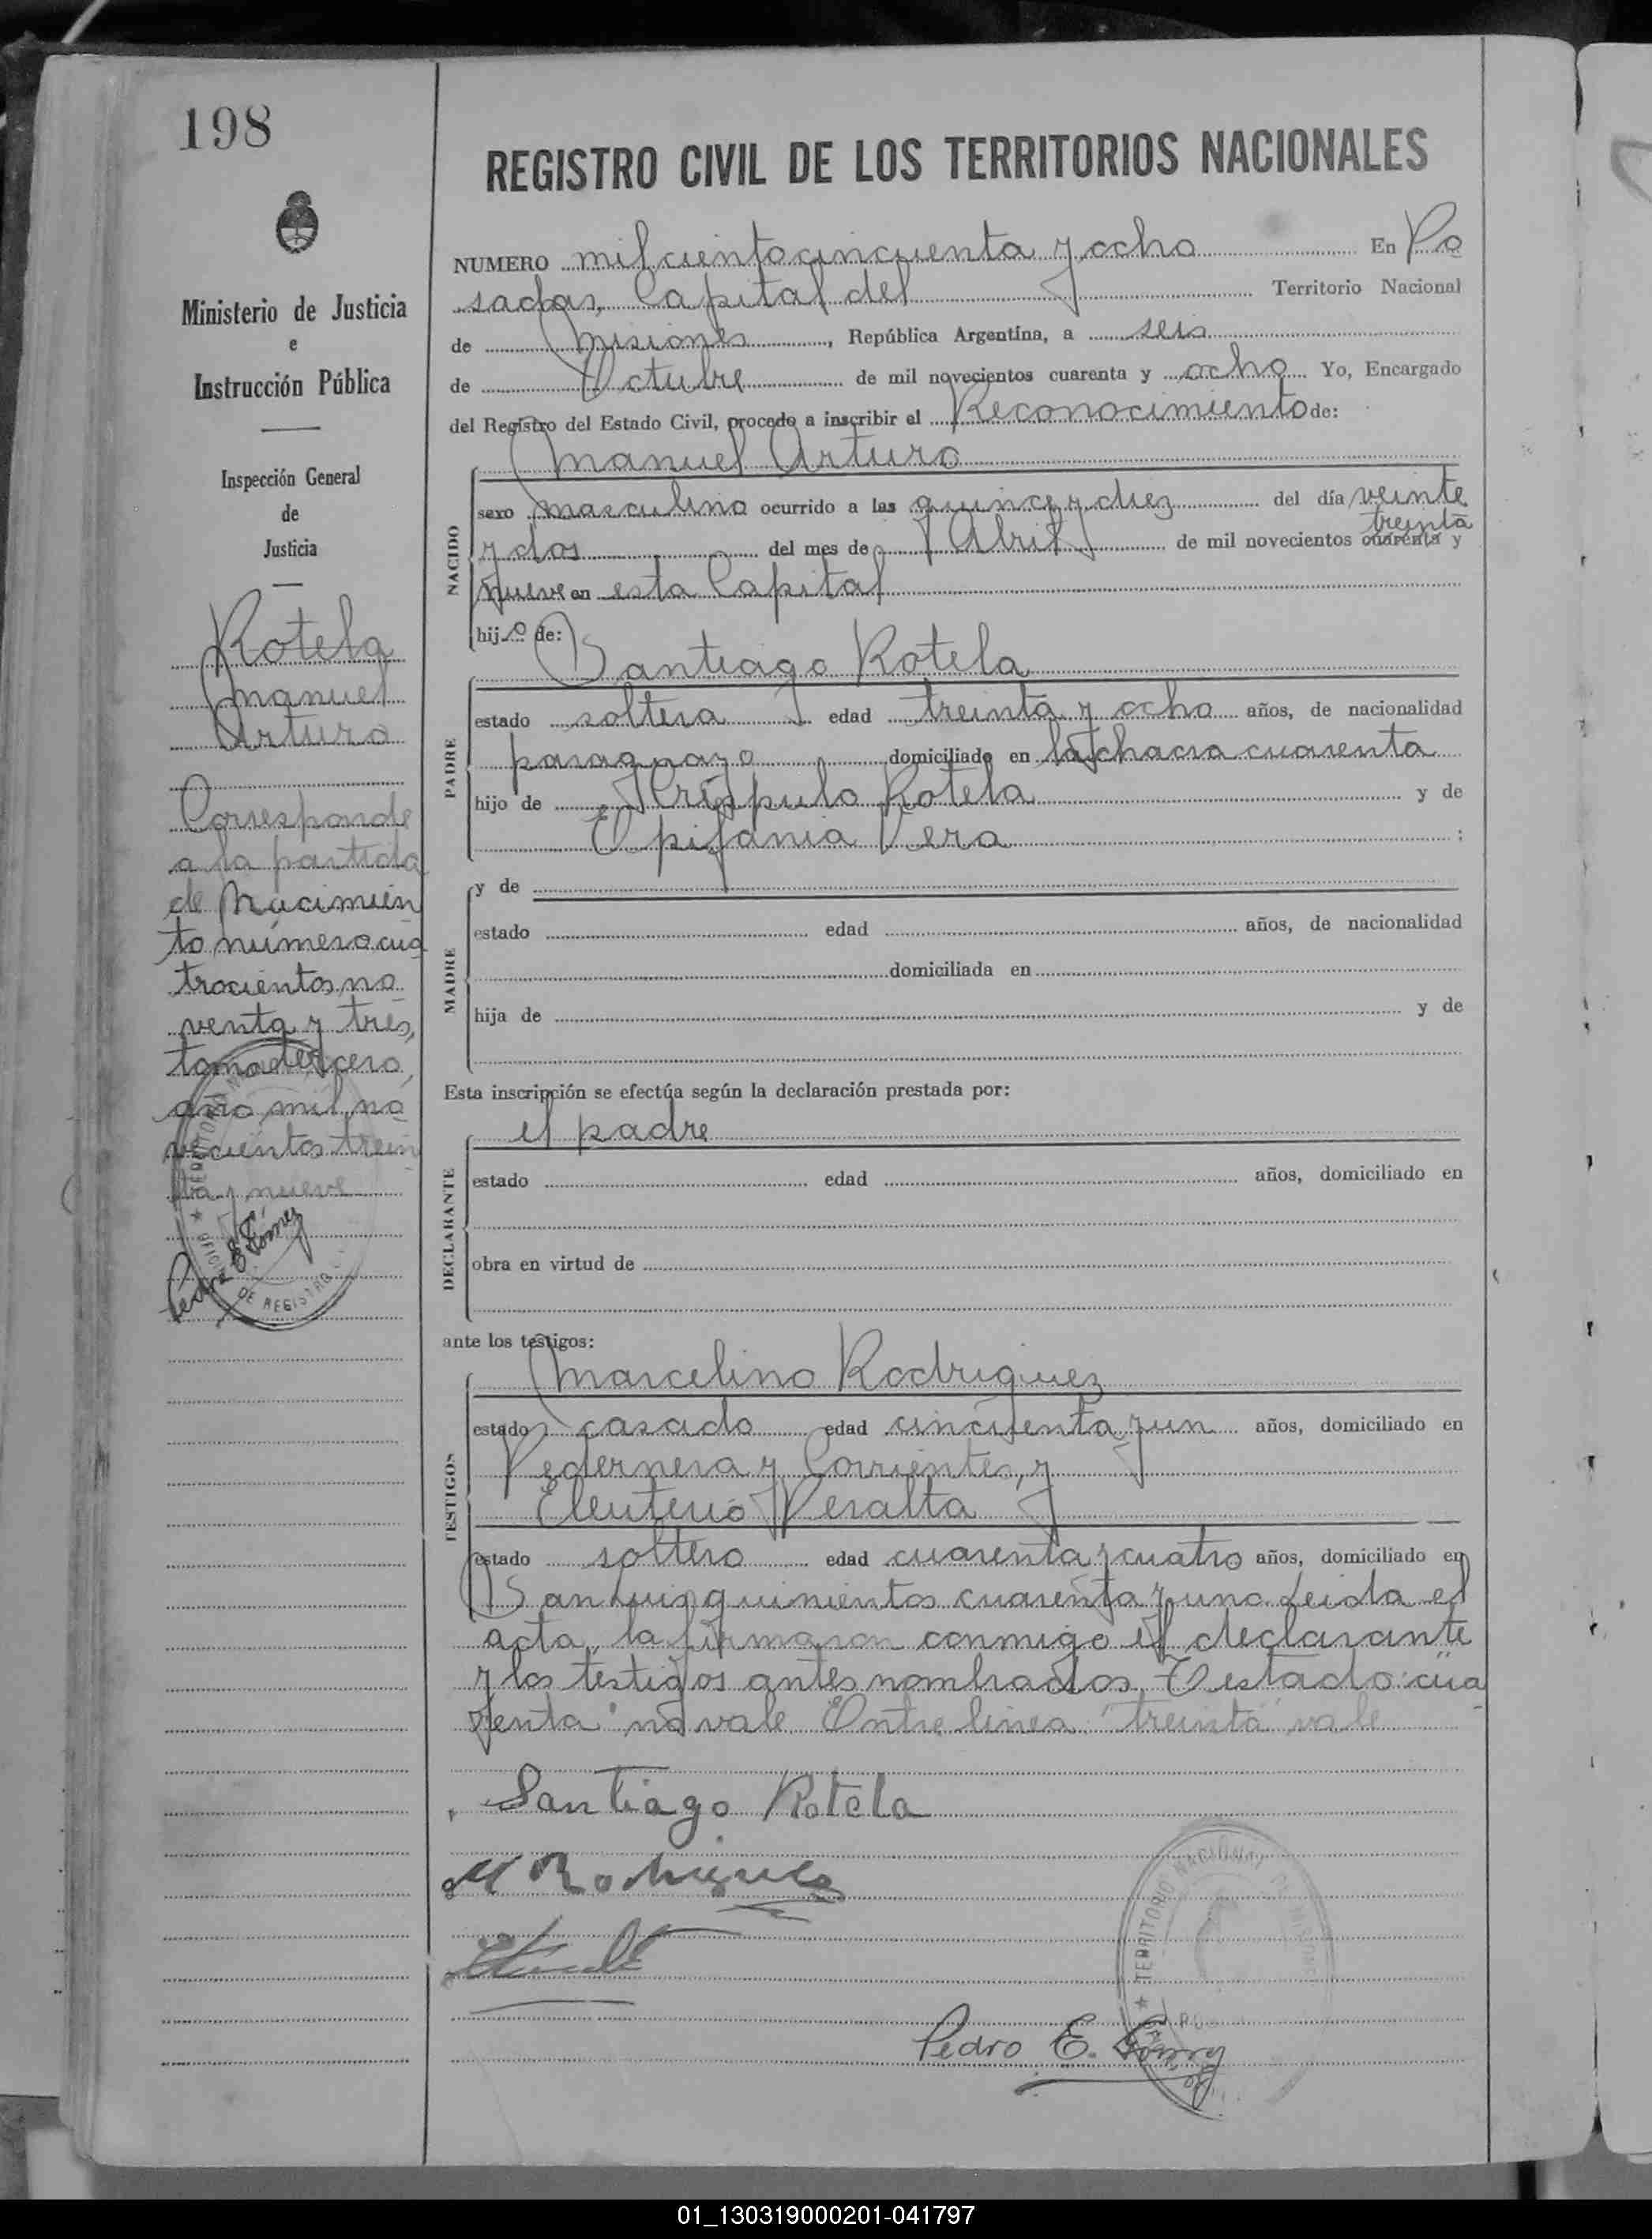 198
Ministerio de Justicia
e
Instrucción Pública
Inspección General
de
Justicia
Rotela
Manuel
Arturo
Corresponde
a la partida
de Nacimien
to número cua
trocientos no
venta y tres,
tomo tercero,
año mil no
vecientos trein
ta y nueve
Pedro E. Gómez
REGISTRO CIVIL DE LOS TERRITORIOS NACIONALES
NUMERO mil ciento cincuenta y ocho En Po
sadas, Capital del Territorio Nacional
de Misiones, República Argentina, a seis
de Octubre de mil novecientos cuarenta y ocho Yo, Encargado
del Registro del Estado Civil, procedo a inscribir el Reconocimiento de:
Manuel Arturo
NACIDO
sexo masculino ocurrido a las quince y diez del día veinte
treinta
y dos del mes de Abril de mil novecientos cuarenta y
nueve en esta Capital
hijo de:
Santiago Rotela
PADRE
estado soltero edad treinta y ocho años, de nacionalidad
paraguayo domiciliado en la chacra cuarenta
hijo de Críspulo Rotela y de
Epifania Vera ;
MADRE
y de
estado edad años, de nacionalidad
domiciliada en
hija de y de
Esta inscripción se efectúa según la declaración prestada por:
el padre
DECLARANTE
estado edad años, domiciliado en
obra en virtud de
ante los testigos:
Marcelino Rodriguez
TESTIGOS
estado casado edad cincuenta y un años, domiciliado en
Pedernera y Corrientes, y
Eleuterio Peralta
estado soltero edad cuarenta y cuatro años, domiciliado en
San Luis quinientos cuarenta y uno. Leida el
acta, la firmaron conmigo el declarante
y los testigos antes nombrados. Testado: "cua
renta" no vale. Entre linea "treinta" vale
Santiago Rotela
M Rodriguez
TERRITORIO NACIONAL DE MISIONES
Pedro E. Gómez
01_130319000201-041797